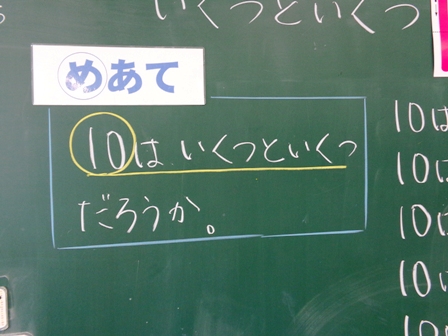 いくつといくつ
めあて
10は いくつといくつ
だろうか。
10は
10は
10は
10は
10は